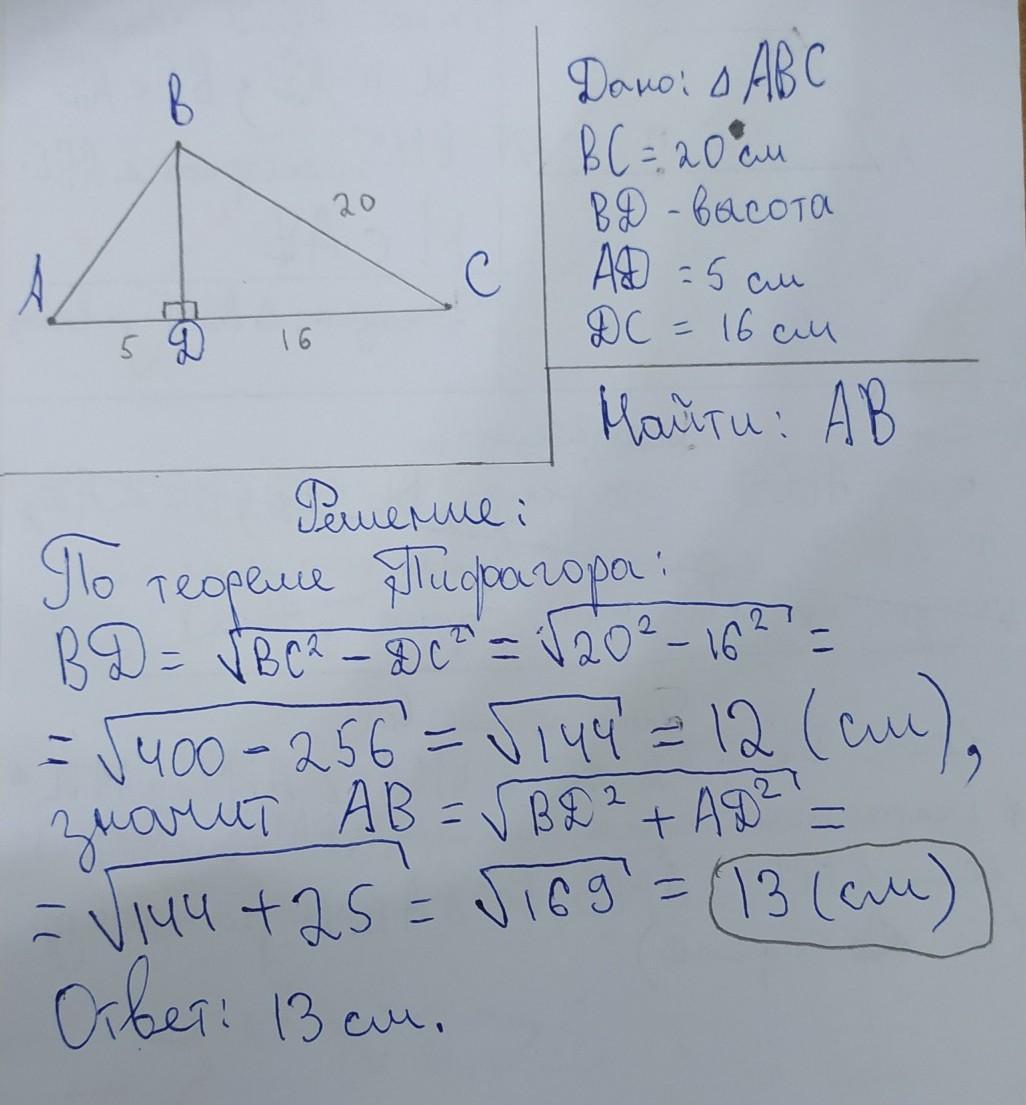 B
20
A
C
5
D
16
Дано: △ ABC
BC = 20 см
BD - высота
AD = 5 см
DC = 16 см
Найти: AB
Решение:
По теореме Пифрагора:
BD = √BC² - DC² = √20² - 16² =
= √400 - 256 = √144 = 12 (см),
значит AB = √BD² + AD² =
= √144 + 25 = √169 = 13 (см)
Ответ: 13 см.